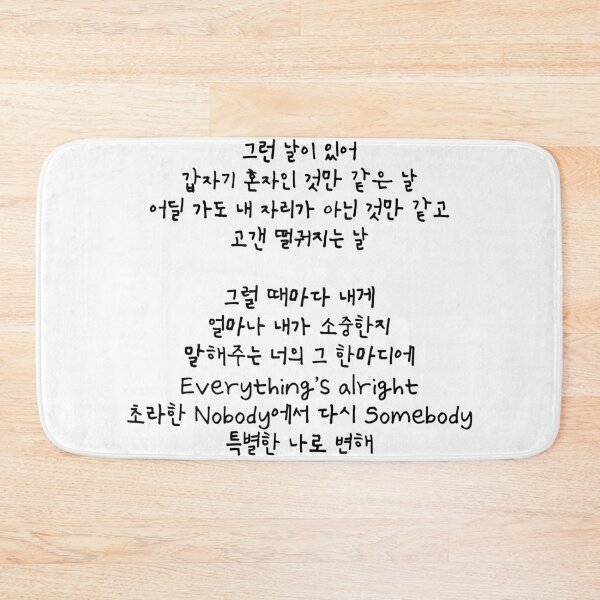 그런 날이 있어
갑자기 혼자인 것만 같은 날
어딜 가도 내 자리가 아닌 것만 같고
고갠 떨궈지는 날
그럴 때마다 내게
얼마나 내가 소중한지
말해주는 너의 그 한마디에
Everything's alright
초라한 Nobody에서 다시 Somebody
특별한 나로 변해